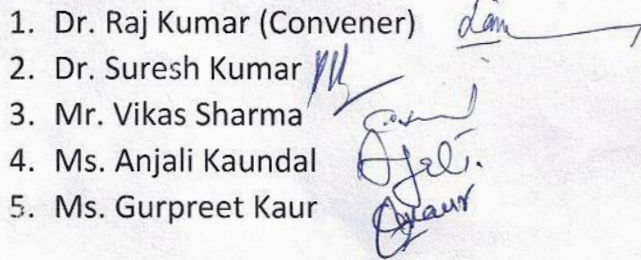 1. Dr. Raj Kumar (Convener)
2. Dr. Suresh Kumar
3. Mr. Vikas Sharma
4. Ms. Anjali Kaundal
5. Ms. Gurpreet Kaur